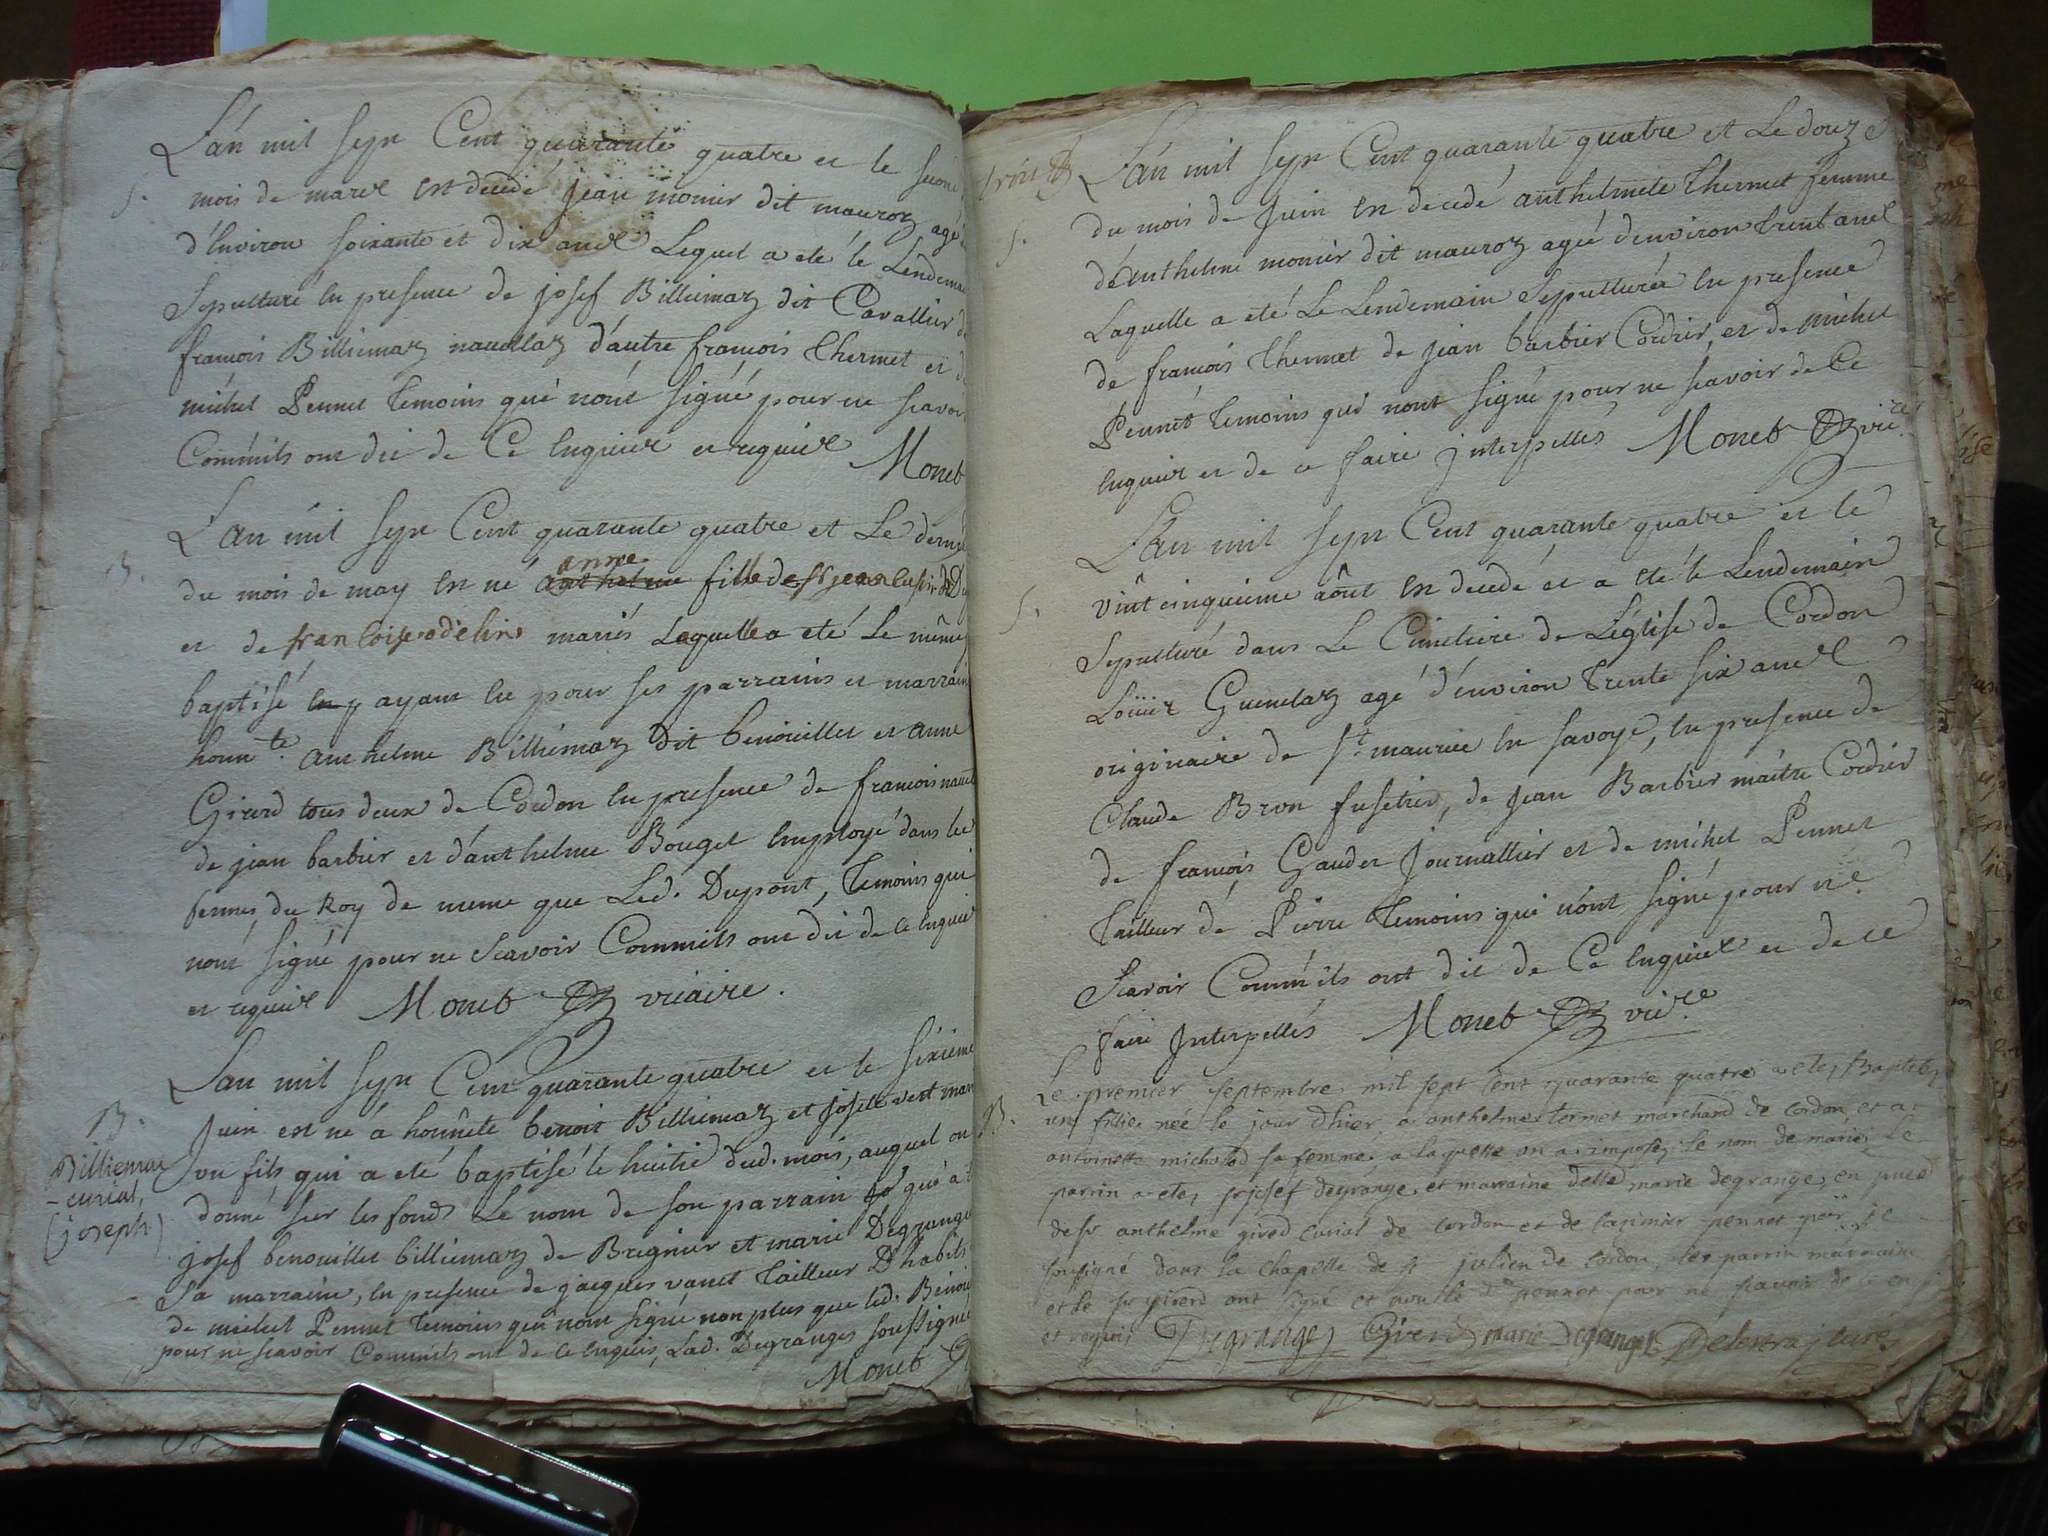 L'an mil sept Cent quarante quatre et le second
S. mois de mars est decedé jean monier dit mauroz agé
d'Environ soixante et dix ans Lequel a eté le Lendemain
sepulturé en presence de josef Billiemaz dit Cavallier de
francois Billiemaz nauellaz d'autre francois thermet et de
michel Pennet temoins qui n'ont signé pour ne scavoir
Comm'ils ont dit de Ce enquis et requis Monet
L'an mil sept Cent quarante quatre et Le dernier
B. du mois de may est né anthelme anne fille de
et de francoise odelin mariés Laquelle a eté Le même
baptisé ayant eu pour ses parrains et marraine
honnte. anthelme Billiemaz dit benouillet et anne
Girerd tous deux de Cordon en presence de francois
de jean barbier et d'anthelme Bouget Employé dans les
fermes du Roy de meme que Led. Dupont, temoins qui
n'ont signé pour ne scavoir Comm'ils ont dit de ce enquis
et requis Monet vicaire.
L'an mil sept Cent quarante quatre et le sixieme
B. Juin est né á honnête benoit Billiemaz et josette vert mari
un fils qui a eté baptisé le huitie dud. mois, auquel on
Billiemaz
-curial,
(joseph)
donné sur les fonds Le nom de son parrain qui a
josef benouillet billiemaz de Bregnier et marie Degrange
sa marraine, en presence de jacques vanet tailleur D'habits
de michel Pennet temoins qui n'ont signé non plus que led. Benoit
pour ne scavoir Comm'ils ont dit de ce enquis, Lad. Degranges soussignée
Monet
L'an mil sept Cent quarante quatre et Le douze
S. du mois de Juin est decedé anthelmete thermet femme
d'anthelme monier dit mauroz ageé d'environ trent ans
Laquelle a eté Le Lendemain Sepulturée en presence
de francois thermet de jean barbier Cordier, et de michel
Pennet temoins qui n'ont signé pour ne scavoir de Ce
enquis et de ce faire interpellés Monet vire.
L'an mil sept Cent quarante quatre et le
S. vint cinquieme aôut est decedé et a eté le Lendemain
Sepulturé dans Le Cimetiere de L'église de Cordon
Loüis Guenelaz agé d'environ trente six ans
originaire de St. maurice en savoye, en presence de
Claude Bron fusetier, de jean Barbier maitre Cordier
de francois Gaudet journallier et de michel Pennet
tailleur de Pierre temoins qui n'ont signé pour ne
Scavoir Comm'ils ont dit de Ce enquis et de ce
faire Interpellés Monet vicre.
Le premier septembre mil sept cent quarante quatre a ete Baptisé
B. un fille née le jour d'hier a anthelme termet marchand de cordon et a
antoinette michalod sa femme a laquelle on a imposé le nom de marie Le
parrin a ete sr josef degrange et marraine delle marie degrange, en pnce
de sr anthelme girod curial de cordon et de casimier pennet par je
soussigné dans la chapelle de st julien de cordon, les parrin marraine
et le sr girerd ont signé et non le d. pennet pour ne savoir de ce en
et requis Degrange Girerd marie Degrange Delestra jcuré